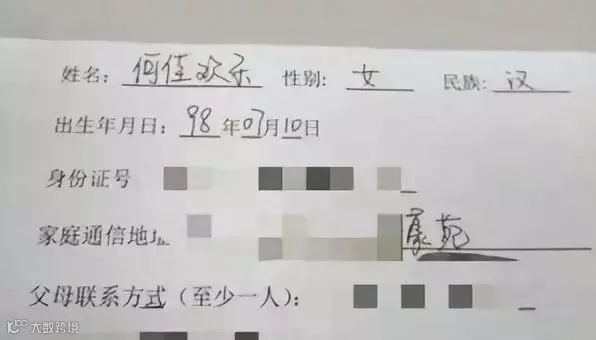 姓名: 何佳欢乐 性别: 女 民族: 汉
出生年月日: 98 年 07 月 10 日
身份证号
家庭通信地址 康苑
父母联系方式（至少一人）:
大数跨境